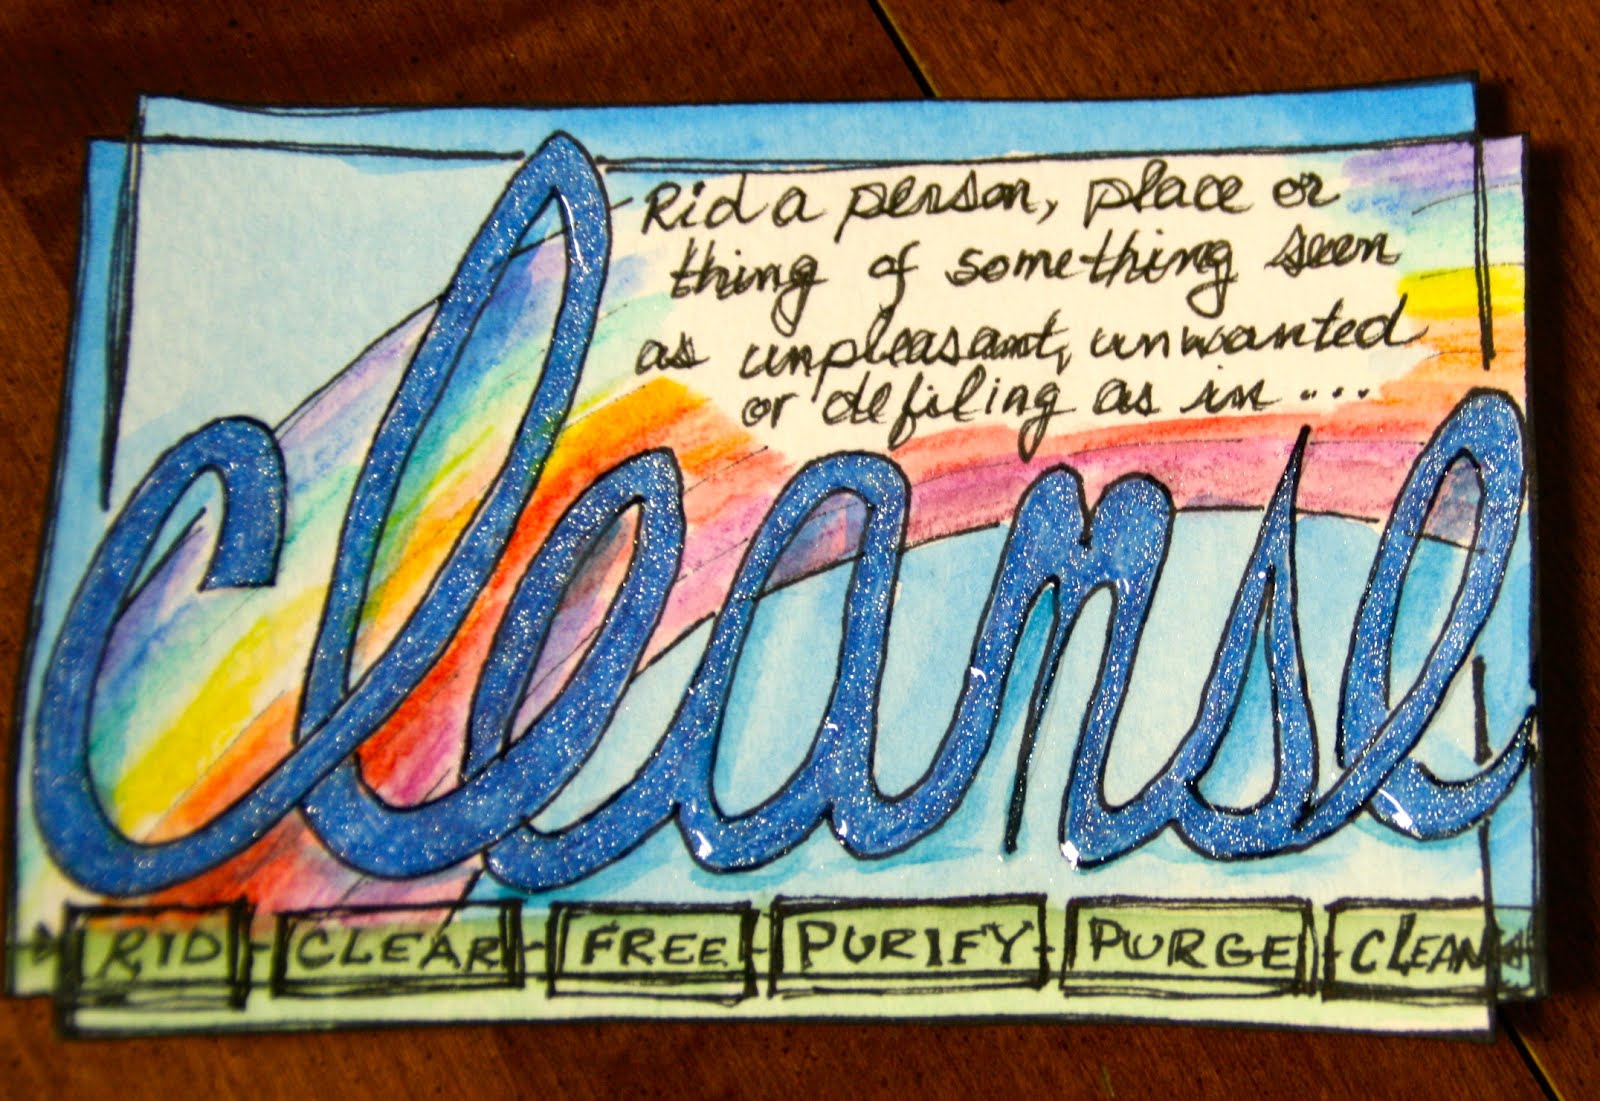 Rid a person, place or
thing of something seen
as unpleasant, unwanted
or defiling as in...
cleanse
RID CLEAR FREE PURIFY PURGE CLEAN